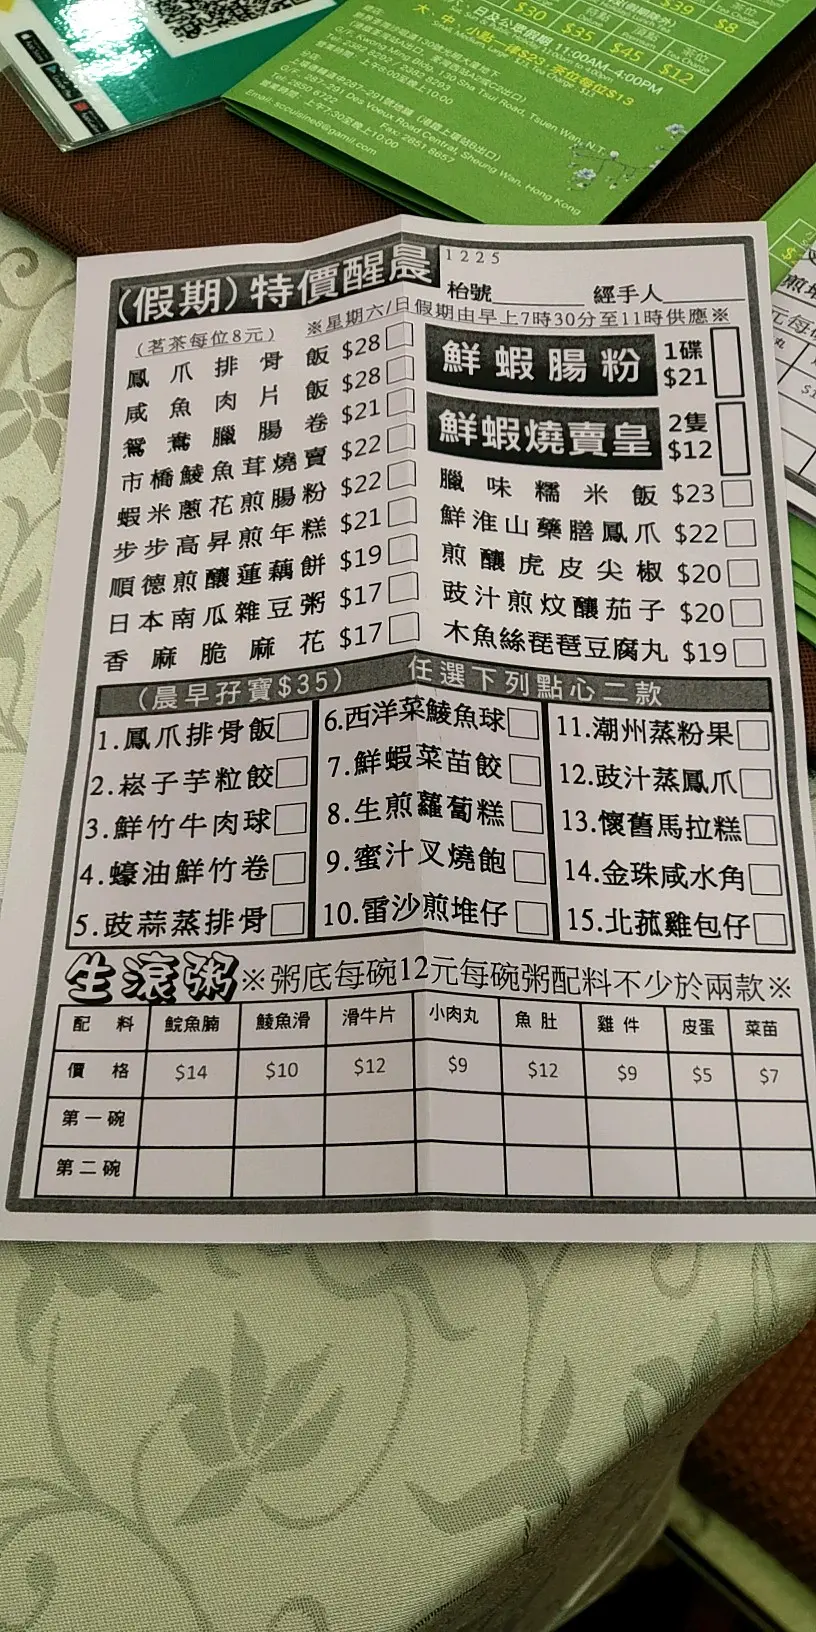 $30
$35
$45
$12
$39
$8
日及公眾假期 11:00AM-4:00PM
大、中、小點一律$23 茶位每位$13
G/F., Kwong Ying Bldg, 130 Sha Tsui Road, Tsuen Wan, N.T.
G/F., 287-291 Des Voeux Road Central, Sheung Wan, Hong Kong
Fax: 2851 8657
Email: sccuisine8@gamil.com
(假期)特價醒晨
1225
枱號 經手人
(茗茶每位8元) ※星期六/日假期由早上7時30分至11時供應※
鳳爪排骨飯 $28
咸魚肉片飯 $28
鴛鴦臘腸卷 $21
市橋鯪魚茸燒賣 $22
蝦米蔥花煎腸粉 $22
步步高昇煎年糕 $21
順德煎釀蓮藕餅 $19
日本南瓜雜豆粥 $17
香麻脆麻花 $17
鮮蝦腸粉 1碟 $21
鮮蝦燒賣皇 2隻 $12
臘味糯米飯 $23
鮮淮山藥膳鳳爪 $22
煎釀虎皮尖椒 $20
豉汁煎炆釀茄子 $20
木魚絲琵琶豆腐丸 $19
(晨早孖寶$35) 任選下列點心二款
1.鳳爪排骨飯
2.崧子芋粒餃
3.鮮竹牛肉球
4.蠔油鮮竹卷
5.豉蒜蒸排骨
6.西洋菜鯪魚球
7.鮮蝦菜苗餃
8.生煎蘿蔔糕
9.蜜汁叉燒飽
10.雷沙煎堆仔
11.潮州蒸粉果
12.豉汁蒸鳳爪
13.懷舊馬拉糕
14.金珠咸水角
15.北菰雞包仔
生滾粥 ※粥底每碗12元每碗粥配料不少於兩款※
配料 鯇魚腩 鯪魚滑 滑牛片 小肉丸 魚肚 雞件 皮蛋 菜苗
價格 $14 $10 $12 $9 $12 $9 $5 $7
第一碗
第二碗